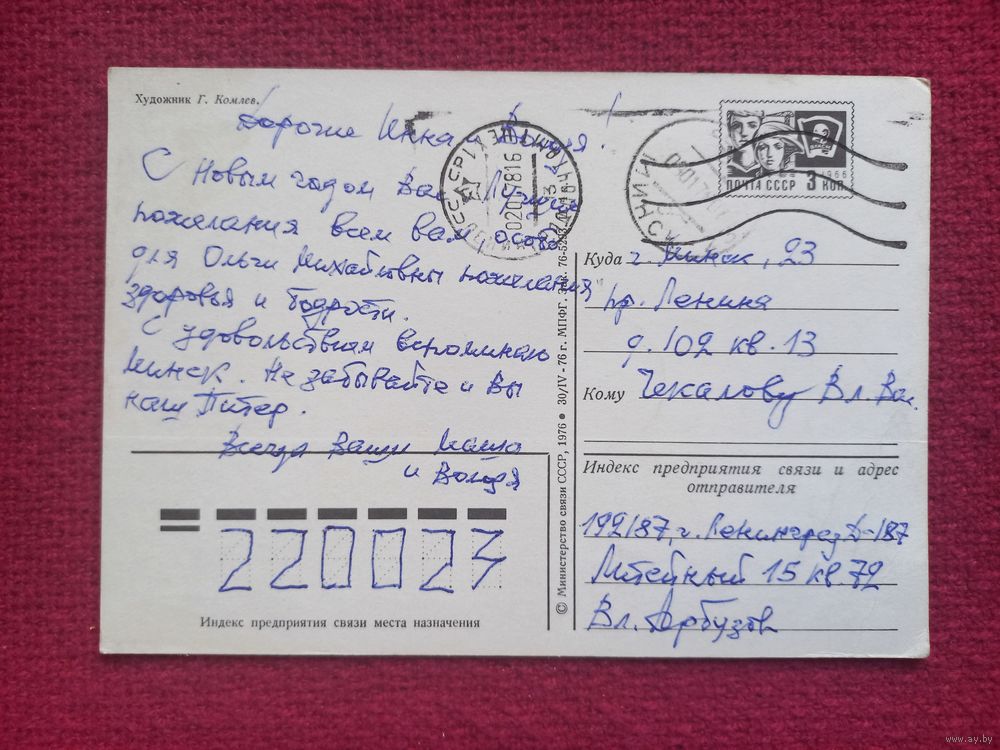 Художник Г. Комлев.
Дорогие Инна и Володя!
С Новым годом Вас! Лучшие
пожелания всем вам, особо
для Ольги Михайловны пожелания
здоровья и бодрости.
С удовольствием вспоминаю
Минск. Не забывайте и Вы
наш Питер.
Всегда Ваши Маша
и Володя
220023
Индекс предприятия связи места назначения
© Министерство связи СССР, 1976 ● 30/IV - 76 г. МПФГ. Зак. 76-
ПОЧТА СССР 1966 3 КОП
ВЛКСМ
МИНСК
Куда г. Минск, 23
пр. Ленина
д. 102 кв. 13
Кому Чекалову Вл. Вас.
Индекс предприятия связи и адрес
отправителя
192187, г. Ленинград Д-187
Литейный 15 кв 72
Вл. Арбузов
www.ay.by